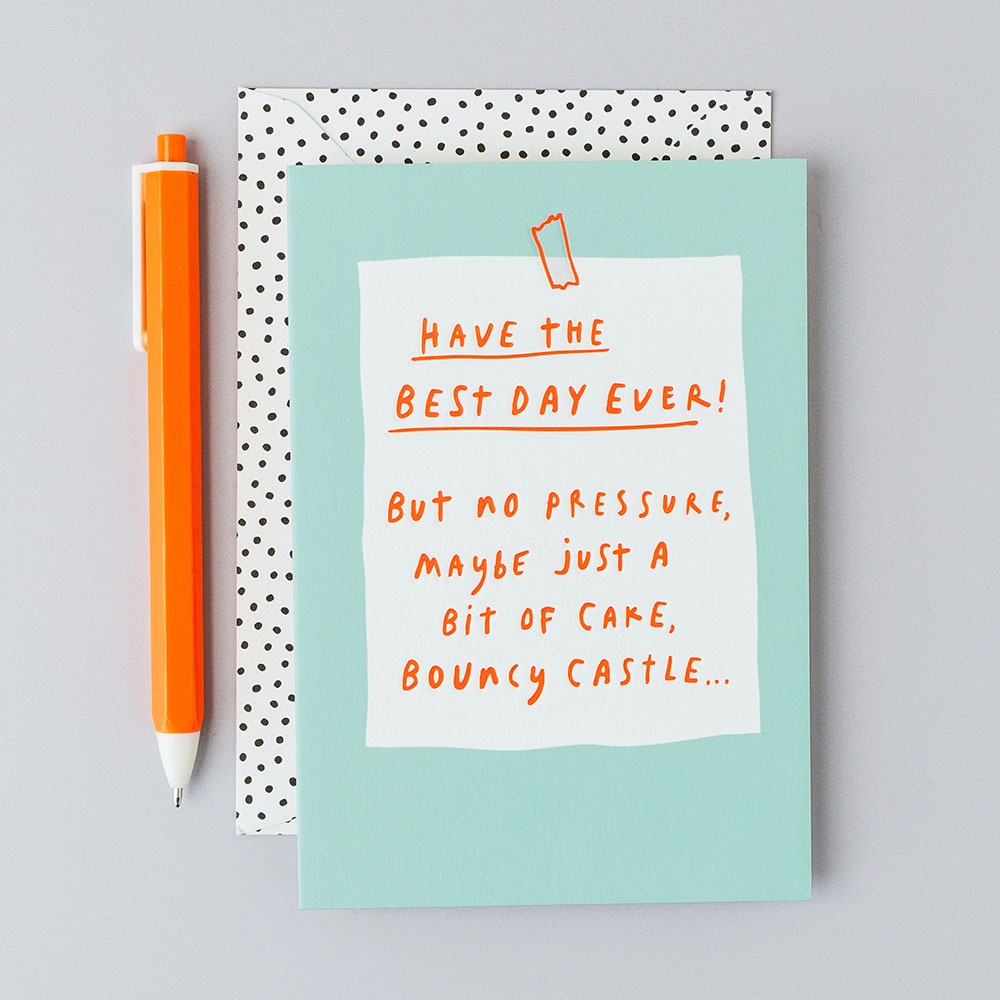 HAVE THE
BEST DAY EVER!
BUT NO PRESSURE,
MAYBE JUST A
BIT OF CAKE,
BOUNCY CASTLE...